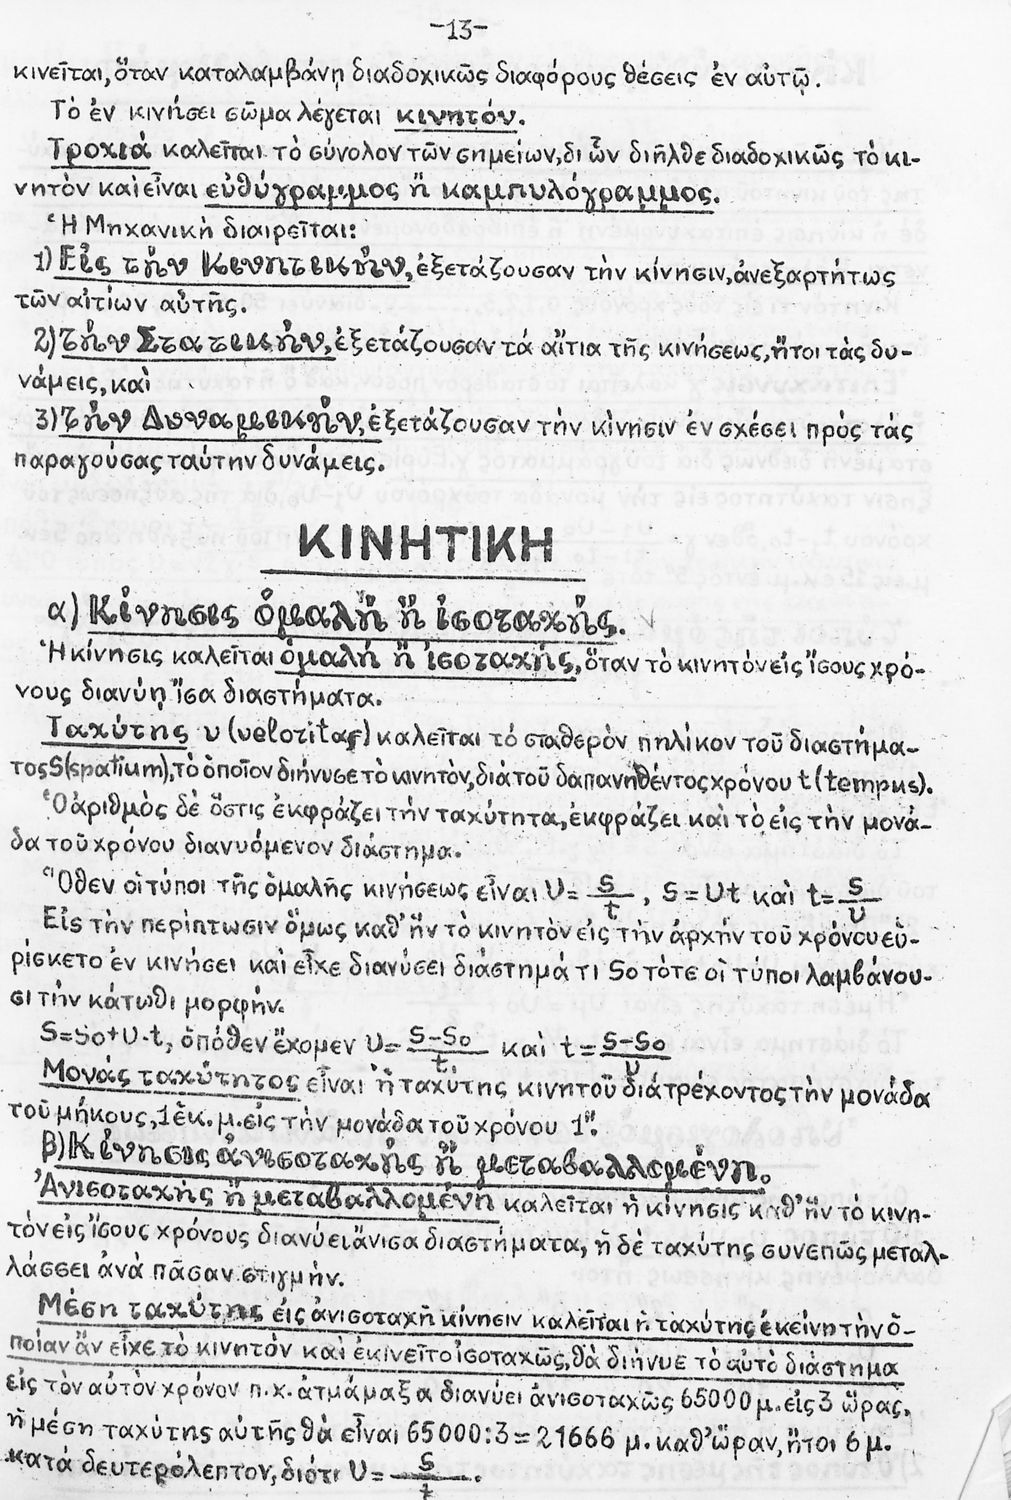 -13-
κινεῖται, ὅταν καταλαμβάνῃ διαδοχικῶς διαφόρους θέσεις ἐν αὐτῷ.
Τὸ ἐν κινήσει σῶμα λέγεται κινητόν.
Τροχιά καλεῖται τὸ σύνολον τῶν σημείων, δι ὧν διῆλθε διαδοχικῶς τὸ κι-
νητὸν καὶ εἶναι εὐθύγραμμος ἢ καμπυλόγραμμος.
Ἡ Μηχανικὴ διαιρεῖται:
1) Εἰς τὴν Κινητικὴν, ἐξετάζουσαν τὴν κίνησιν, ἀνεξαρτήτως
τῶν αἰτίων αὐτῆς.
2) τὴν Στατικὴν, ἐξετάζουσαν τὰ αἴτια τῆς κινήσεως, ἤτοι τὰς δυ-
νάμεις, καὶ
3) τὴν Δυναμικὴν, ἐξετάζουσαν τὴν κὶνησιν ἐν σχέσει πρὸς τὰς
παραγούσας ταύτην δυνάμεις.
ΚΙΝΗΤΙΚΗ
α) Κίνησις ὁμαλὴ ἢ ἰσοταχὴς.
Ἡ κίνησις καλεῖται ὁμαλὴ ἢ ἰσοταχὴς, ὅταν τὸ κινητὸν εἰς ἴσους χρό-
νους διανύῃ ἴσα διαστήματα.
Ταχύτης υ (velocitas) καλεῖται τὸ σταθερὸν πηλίκον τοῦ διαστήμα-
τος S(spatium), τὸ ὁποῖον διήνυσε τὸ κινητὸν, διὰ τοῦ δαπανηθέντος χρόνου t (tempus).
Ὁ ἀριθμὸς δὲ ὅστις ἐκφράζει τὴν ταχύτητα, ἐκφράζει καὶ τὸ εἰς τὴν μονά-
δα τοῦ χρόνου διανυόμενον διάστημα.
Ὅθεν οἱ τύποι τῆς ὁμαλῆς κινήσεως εἶναι U= S/t, S = Ut καὶ t= S/υ
Εἰς τὴν περίπτωσιν ὅμως καθ' ἣν τὸ κινητὸν εἰς τὴν ἀρχὴν τοῦ χρόνου εὑ-
ρίσκετο ἐν κινήσει καὶ εἶχε διανύσει διάστημά τι So τότε οἱ τύποι λαμβάνου-
σι τὴν κάτωθι μορφήν.
S=So+υ·t, ὁπόθεν ἔχομεν υ= S-So/t, καὶ t= S-So/υ
Μονάς ταχύτητος εἶναι ἡ ταχύτης κινητοῦ διατρέχοντος τὴν μονάδα
τοῦ μήκους, 1 ἑκ. μ. εἰς τὴν μονάδα τοῦ χρόνου 1".
β) Κίνησις ἀνισοταχὴς ἢ μεταβαλλομένη.
Ἀνισοταχὴς ἢ μεταβαλλομένη καλεῖται ἡ κίνησις καθ' ἣν τὸ κινη-
τὸν εἰς ἴσους χρόνους διανύει ἄνισα διαστήματα, ἡ δὲ ταχύτης συνεπῶς μεταλ-
λάσσει ἀνὰ πᾶσαν στιγμὴν.
Μέση ταχύτης εἰς ἀνισοταχῆ κίνησιν καλεῖται ἡ ταχύτης ἐκείνη τὴν ὁ-
ποίαν ἄν εἶχε τὸ κινητὸν καὶ ἐκινεῖτο ἰσοταχῶς, θὰ διήνυε τὸ αὐτὸ διάστημα
εἰς τὸν αὐτὸν χρόνον π.χ. ἀτμάμαξα διανύει ἀνισοταχῶς 65000 μ. εἰς 3 ὥρας,
ἡ μέση ταχύτης αὐτῆς θὰ εἶναι 65000:3 = 21666 μ. καθ' ὥραν, ἤτοι 6 μ.
κατὰ δευτερόλεπτον, διότι U= S/t.